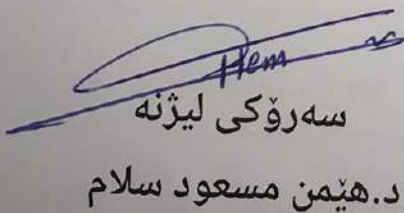 Hem
سەرۆکی لیژنە
د.هێمن مسعود سلام